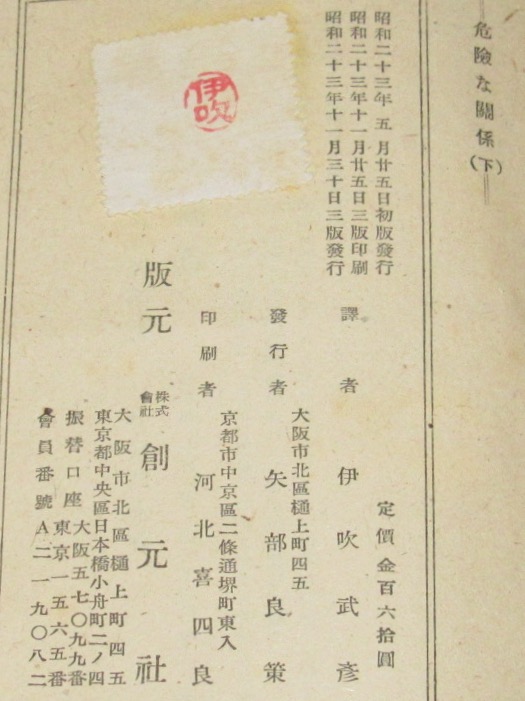 危險な關係(下)
昭和二十三年五月廿五日初版發行
昭和二十三年十一月廿五日三版印刷
昭和二十三年十一月三十日三版發行
定價金百六拾圓
譯者 伊吹武彥
大阪市北區樋上町四五
發行者 矢部良策
京都市中京區二條通堺町東入
印刷者 河北喜四良
版元 株式會社 創元社
大阪市北區樋上町四五
東京都中央區日本橋小舟町二ノ四
振替口座 大阪五七〇九九番
東京一五六五番
會員番號A二一九〇八二
伊吹